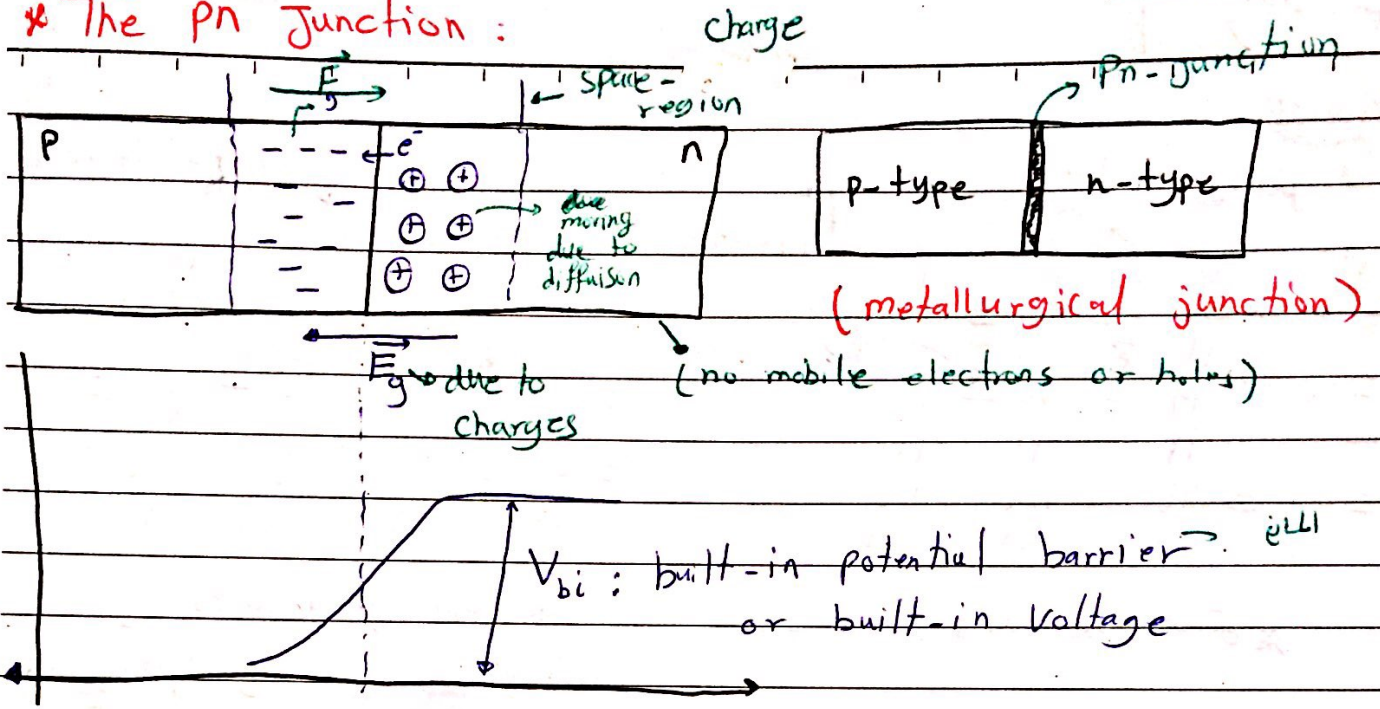 * The pn Junction :
charge
space-
region
Pn-Junction
p
e-
n
+ +
+ +
+ +
due
moving
due to
diffuison
p-type
n-type
(metallurgical junction)
Eg due to
charges
(no mobile electrons or holes)
Vbi : built-in potential barrier
or built-in Voltage